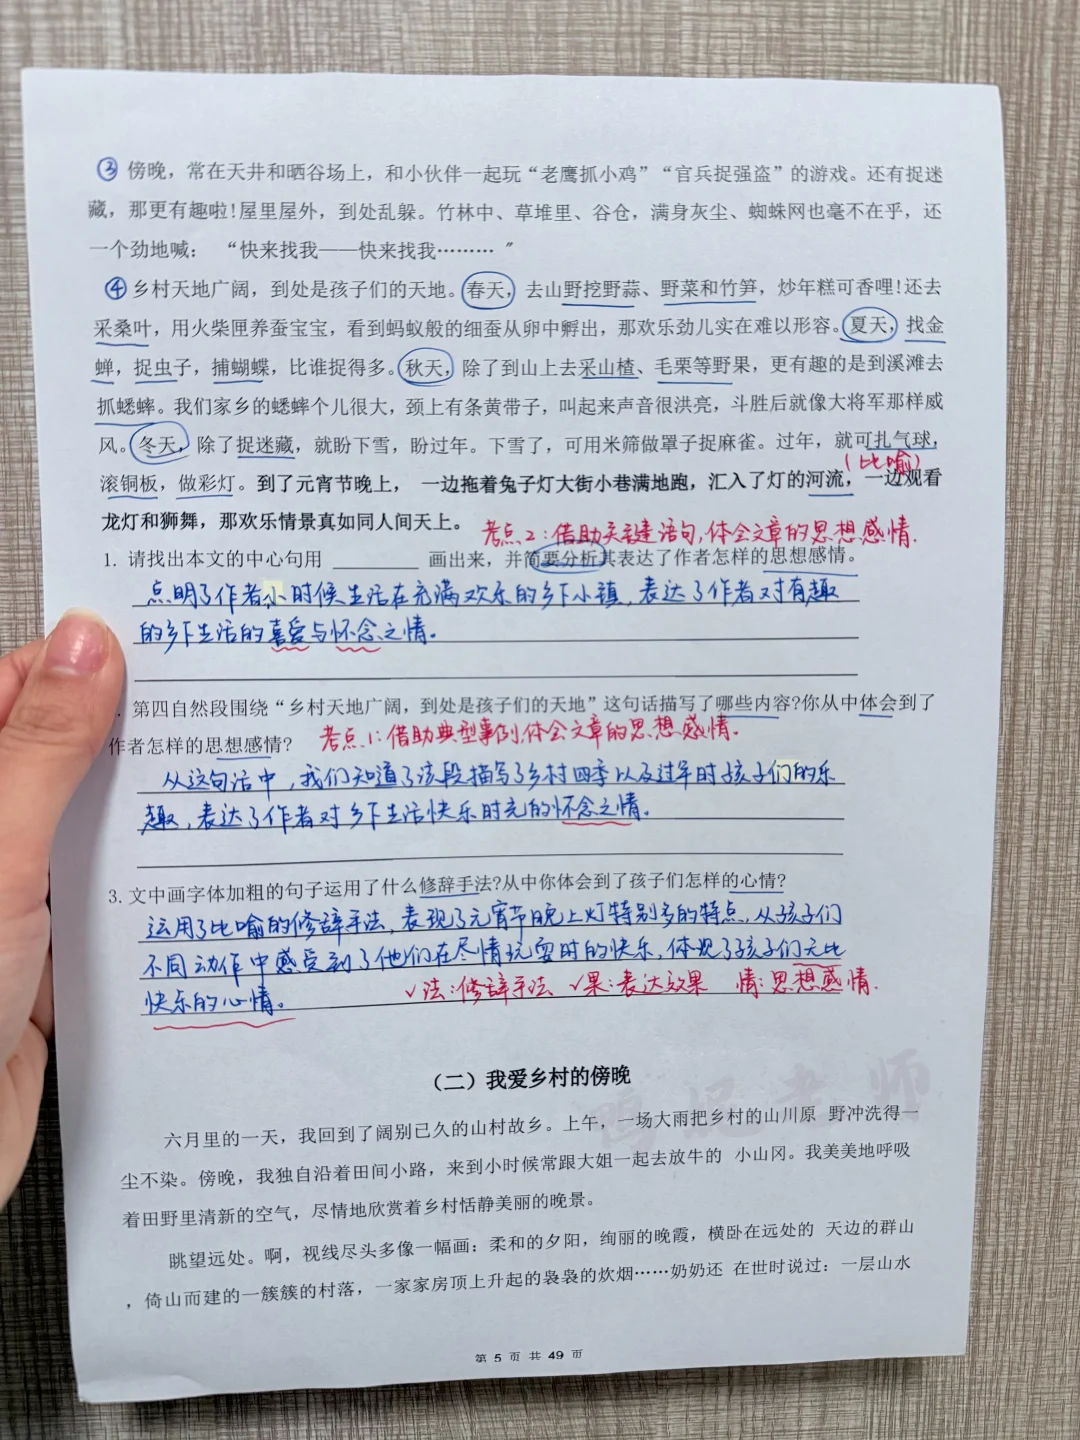 ③ 傍晚，常在天井和晒谷场上，和小伙伴一起玩“老鹰抓小鸡”“官兵捉强盗”的游戏。还有捉迷
藏，那更有趣啦!屋里屋外，到处乱躲。竹林中、草堆里、谷仓，满身灰尘、蜘蛛网也毫不在乎，还
一个劲地喊： “快来找我——快来找我………”
④ 乡村天地广阔，到处是孩子们的天地。春天，去山野挖野蒜、野菜和竹笋，炒年糕可香哩!还去
采桑叶，用火柴匣养蚕宝宝，看到蚂蚁般的细蚕从卵中孵出，那欢乐劲儿实在难以形容。夏天，找金
蝉，捉虫子，捕蝴蝶，比谁捉得多。秋天，除了到山上去采山楂、毛栗等野果，更有趣的是到溪滩去
抓蟋蟀。我们家乡的蟋蟀个儿很大，颈上有条黄带子，叫起来声音很洪亮，斗胜后就像大将军那样威
风。冬天，除了捉迷藏，就盼下雪，盼过年。下雪了，可用米筛做罩子捉麻雀。过年，就可扎气球，
(比喻)
滚铜板，做彩灯。到了元宵节晚上， 一边拖着兔子灯大街小巷满地跑，汇入了灯的河流，一边观看
龙灯和狮舞，那欢乐情景真如同人间天上。
考点2:借助关键语句,体会文章的思想感情.
1. 请找出本文的中心句用 ________ 画出来，并简要分析其表达了作者怎样的思想感情。
点明了作者小时候生活在充满欢乐的乡下小镇，表达了作者对有趣
的乡下生活的喜爱与怀念之情。
. 第四自然段围绕“乡村天地广阔，到处是孩子们的天地”这句话描写了哪些内容?你从中体会到了
作者怎样的思想感情?
考点1:借助典型事例,体会文章的思想感情.
从这句话中，我们知道了该段描写了乡村四季以及过年时孩子们的乐
趣，表达了作者对乡下生活快乐时光的怀念之情。
3. 文中画字体加粗的句子运用了什么修辞手法?从中你体会到了孩子们怎样的心情?
运用了比喻的修辞手法，表现了元宵节晚上灯特别多的特点，从孩子们
不同动作中感受到了他们在尽情玩耍时的快乐，体现了孩子们无比
快乐的心情。
√法:修辞手法 √果:表达效果 情:思想感情.
（二）我爱乡村的傍晚
六月里的一天，我回到了阔别已久的山村故乡。上午，一场大雨把乡村的山川原 野冲洗得一
尘不染。傍晚，我独自沿着田间小路，来到小时候常跟大姐一起去放牛的 小山冈。我美美地呼吸
着田野里清新的空气，尽情地欣赏着乡村恬静美丽的晚景。
眺望远处。啊，视线尽头多像一幅画：柔和的夕阳，绚丽的晚霞，横卧在远处的 天边的群山
，倚山而建的一簇簇的村落，一家家房顶上升起的袅袅的炊烟……奶奶还 在世时说过：一层山水
第 5 页 共 49 页